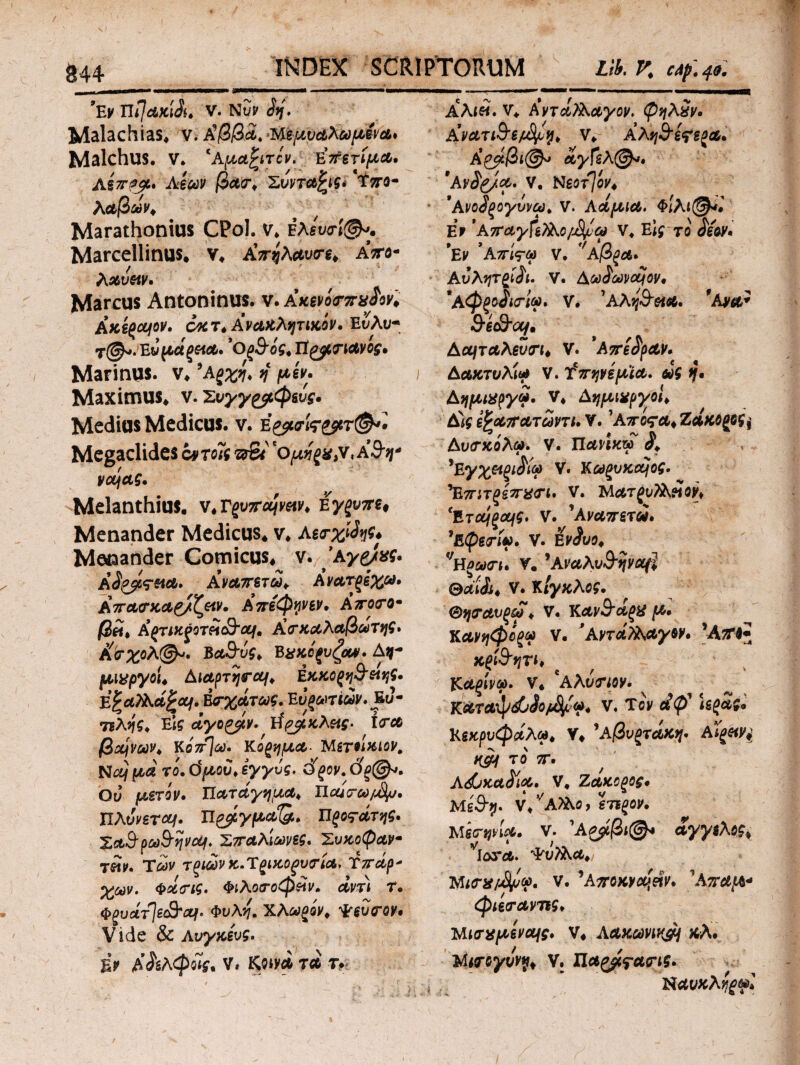 844 INDEX SCRIPTORUM Lib. V. cap. 40.
Ἐν Πιθακίδι. v. Νῦν δή.
Malachias. v. Ἀββᾶ. Μεμυαλωμένα.
Malchus. v. Ἁμαξιτόν. Ἐπετίμα.
Λέπρα. Λέων βασ. Σύνταξις. Ὑπο-
λαβών.
Marathonius CPol. v. ἐλεύσιος.
Marcellinus. v. Ἀπήλαυσε. Ἀπο-
λαύειν.
Marcus Antoninus. v. Ἀκενόσπουδον.
Ἀκέραιον. ἐκ τ. Ἀνακλητικόν. Εὔλυ-
τος. Εὐμάρεια. Ὀρθός. Πρασιανός.
Marinus. v. Ἀρχή. ἢ μέν.
Maximus. v. Συγγραφεύς.
Medius Medicus. v. Ἐρασίστρατος.
Megaclides ἐν τοῖς περὶ Ὁμήρου, v. Ἀθη-
ναίας.
Melanthius. v. Γρυπαίνειν. Ἔγρυπε.
Menander Medicus. v. Λεσχίδης.
Menander Comicus. v. Ἀγρίους.
Ἀδράστεια. Ἀναπετῶ. Ἀνατρέχω.
Ἀπασκαρίζειν. Ἀπέφηνεν. Ἀποσο-
βεῖ. Ἀρτικροτεῖσθαι. Ἀσκαλαβώτης.
Ἄσχολος. Βαθύς. Βουκόρυζαν. Δη-
μιουργοί. Διαρτῆσαι. Ἐκκορηθείης.
Ἐξαλλάξαι. Ἐσχάτως. Εὐρωτιῶν. Εὐ-
τελής. Εἰς ἀγοράν. Ἡράκλεις. ἴσα
βαίνων. Κόπτω. Κόρημα. Μετοίκιον.
Ναὶ μὰ τό. Ὁμοῦ. ἐγγύς. ὅρον. Ὅρος.
Οὐ μετόν. Πατάγημα. Παίσωμεν.
Πλύνεται. Πράγματα. Προστάτης.
Σαθρωθῆναι. Σπαλίωνες. Συκοφαν-
τεῖν. Τῶν τριῶν κ. Τρικορυσία. Ὑπάρ-
χων. Φάσις. Φιλοσοφεῖν. ἀντὶ τ.
Φρυάττεσθαι. Φυλή. Χλωρόν. Ψεῦσον.
Vide & Λυγκεύς.
Ἐν Ἀδελφοῖς. v. Κοινὰ τὰ τ.
Ἁλιεῖ. v. Ἀντάλλαγον. φηλοῦν.
Ἀνατιθεμένῃ. v. Ἀληθέστερα.
Ἀράβιος ἄγγελος.
Ἀνδρίᾳ. v. Νεοττόν.
Ἀνδρογύνῳ. v. Λάμια. Φίλιος.
Ἐν Ἀπαγγελλομένῳ v. Εἰς τὸ δέον.
Ἐν Ἀπίστῳ v. Ἅβρα.
Αὐλητρίδι. v. Δωδωναῖον.
Ἀφροδισίῳ. v. Ἀλήθεια. Ἀνα-
θέσθαι.
Δαιταλεῦσι. v. Ἀπέδραν.
Δακτυλίῳ v. Ὑπηνέμια. ὡς ἤ.
Δημιουργῷ. v. Δημιουργοί.
Δὶς ἐξαπατῶντι. v. Ἀπόστα. Ζάκορος.
Δυσκόλῳ. v. Πανικῷ δ.
Ἐγχειριδίῳ v. Κωρυκαῖος.
Ἐπιτρέπουσι. v. Ματρυλλεῖον.
Ἑταίραις. v. Ἀναπετῶ.
Ἐφεσίῳ. v. Ἔνδυο.
Ἥρωσι. v. Ἀναλυθῆναι.
Θαΐδι. v. Κίγκλος.
Θησαυρῷ. v. Κανθάρου μ.
Κανηφόρῳ v. Ἀντάλλαγον. Ἀπο-
κριθήτι.
Καρίνῳ. v. Ἀλύσιον.
Καταψευδομένῳ. v. Τὸν ἀφ' ἱερᾶς.
Κεκρυφάλῳ. v. Ἀβυρτάκη. Αἴρειν.
καὶ τὸ π.
Λευκαδίᾳ. v. Ζάκορος.
Μέθῃ. v. Ἄλλο, ἕτερον.
Μεσηνίᾳ. v. Ἀράβιος ἄγγελος.
Ἴσσα. Ψύλλα.
Μισουμένῳ. v. Ἀποκναίειν. Ἀπαμ-
φιέσαντες.
Μισουμέναις. v. Λακωνικαὶ κλ.
Μισογύνῃ. v. Παράστασις.
Ναυκλήρῳ.